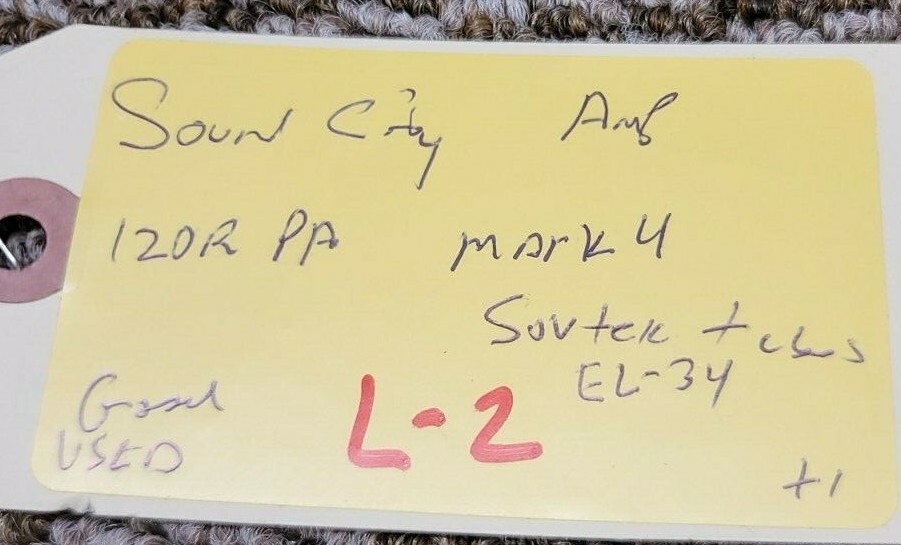 Sound City Amp
120R PA mark 4
Sovtek tubes
EL-34
Good
USED
L-2
+1